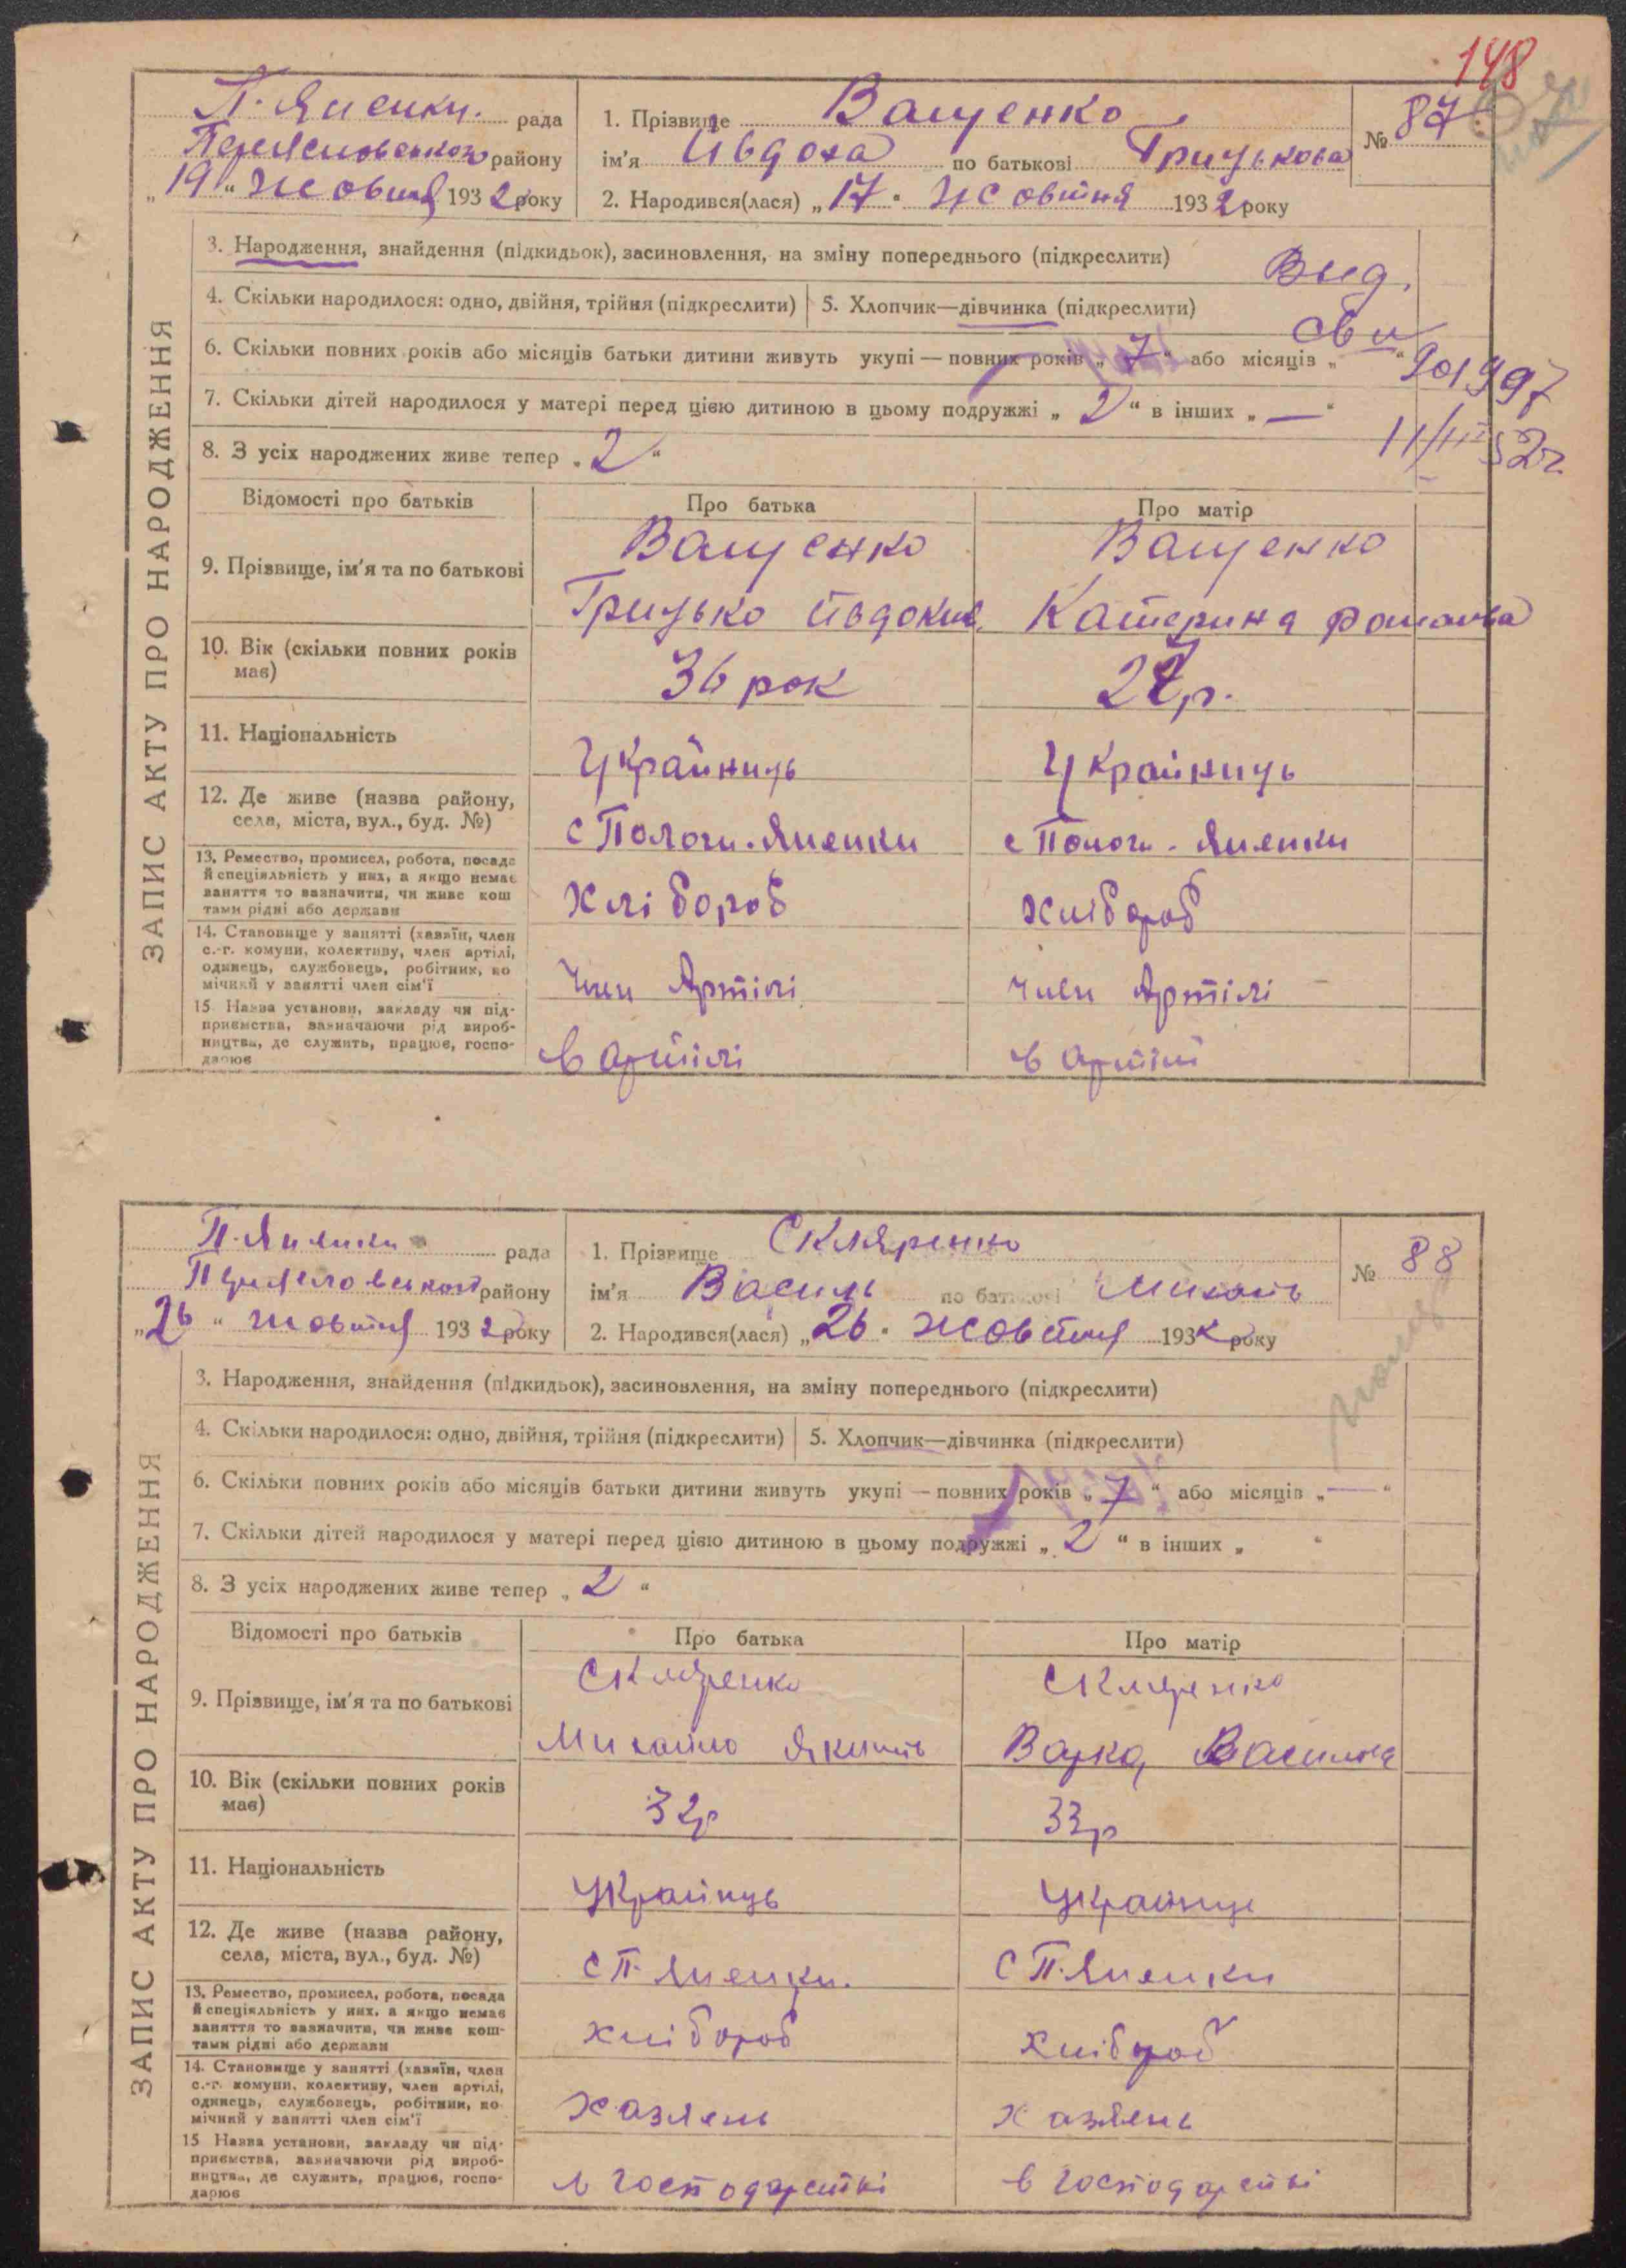 148
П. Яненки. рада
Переяславського району
„19“ Жовтня 1932 року
1. Прізвище Ващенко
ім'я Івдоха по батькові Грицькова
2. Народився(лася) „17“ Жовтня 1932 року
№ 87
ЗАПИС АКТУ ПРО НАРОДЖЕННЯ
3. Народження, знайдення (підкидьок), засиновлення, на зміну попереднього (підкреслити)
Выд.
4. Скільки народилося: одно, двійня, трійня (підкреслити) 5. Хлопчик—дівчинка (підкреслити)
св и
6. Скільки повних років або місяців батьки дитини живуть укупі — повних років „7“ або місяців „ “
901997
7. Скільки дітей народилося у матері перед цією дитиною в цьому подружжі „2“ в інших „—“
11/III 52г.
8. З усіх народжених живе тепер „2“
Відомості про батьків Про батька Про матір
9. Прізвище, ім'я та по батькові
Ващенко Ващенко
Грицько Івдоким. Катерина Романова
10. Вік (скільки повних років має)
36 рок 27р.
11. Національність
Україниць Україниць
12. Де живе (назва району, села, міста, вул., буд. №)
с Пологи-Яненки с Пологи-Яненки
13. Ремество, промисел, робота, посада й спеціяльність у них, а якщо немає заняття то зазначити, чи живе коштами рідні або держави
Хлібороб хлібороб
14. Становище у занятті (хазяїн, член с.-г. комуни, колективу, член артілі, одинець, службовець, робітник, помічний у занятті член сім'ї
член Артілі член Артілі
15. Назва установи, закладу чи підприємства, зазначаючи рід виробництва, де служить, працює, господарює
в артілі в артілі
П. Яненки рада
Переяславського району
„26“ жовтня 1932 року
1. Прізвище Скляренко
ім'я Василь по батькові Михайл
2. Народився(лася) „26“ жовтня 1932 року
№ 88
ЗАПИС АКТУ ПРО НАРОДЖЕННЯ
3. Народження, знайдення (підкидьок), засиновлення, на зміну попереднього (підкреслити)
4. Скільки народилося: одно, двійня, трійня (підкреслити) 5. Хлопчик—дівчинка (підкреслити)
6. Скільки повних років або місяців батьки дитини живуть укупі — повних років „7“ або місяців „—“
7. Скільки дітей народилося у матері перед цією дитиною в цьому подружжі „2“ в інших „ “
8. З усіх народжених живе тепер „2“
Відомості про батьків Про батька Про матір
9. Прізвище, ім'я та по батькові
Скляренко Скляренко
Михайло Якимів Варка Василів
10. Вік (скільки повних років має)
32р 33р
11. Національність
Українць Українць
12. Де живе (назва району, села, міста, вул., буд. №)
с П. Яненки. с П. Яненки
13. Ремество, промисел, робота, посада й спеціяльність у них, а якщо немає заняття то зазначити, чи живе коштами рідні або держави
хлібороб хлібороб
14. Становище у занятті (хазяїн, член с.-г. комуни, колективу, член артілі, одинець, службовець, робітник, помічний у занятті член сім'ї
хазяень хазяень
15 Назва установи, закладу чи підприємства, зазначаючи рід виробництва, де служить, працює, господарює
в господарстві в господарстві